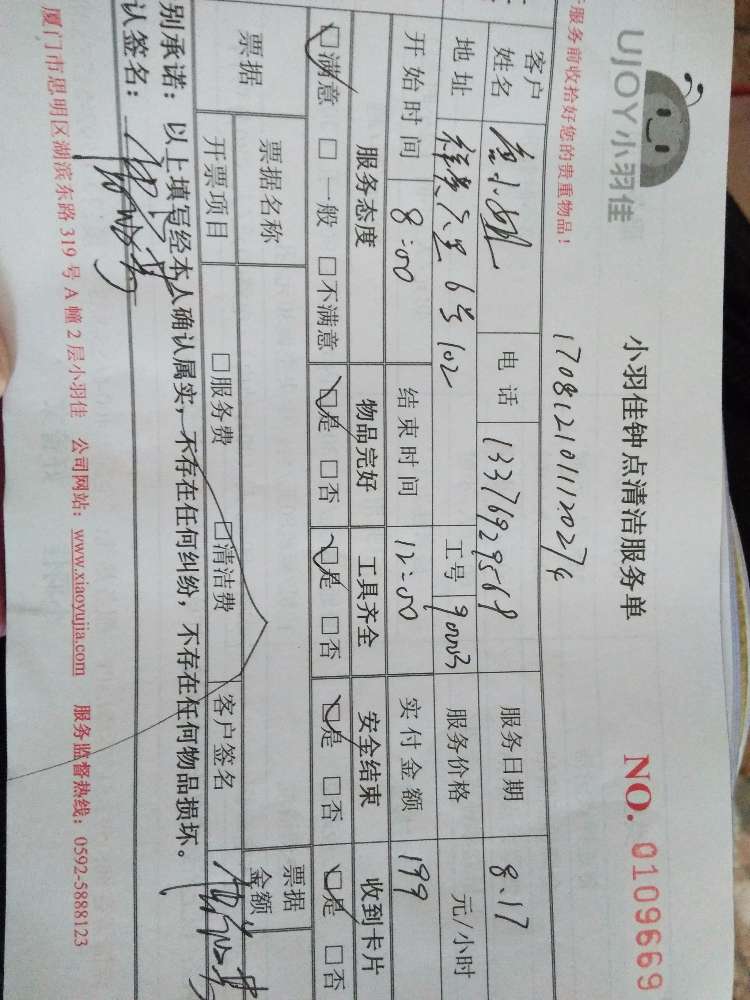 UJOY小羽佳
小羽佳钟点清洁服务单
NO. 0109669
服务前收拾好您的贵重物品！
1708121011120274
客户姓名 电话 13376929568 服务日期 8.17
地址 6号102 工号 90003 服务价格 元/小时
开始时间 8:00 结束时间 12:00 实付金额 199
服务态度 物品完好 工具齐全 安全结束 收到卡片
☑满意 □一般 □不满意 ☑是 □否 ☑是 □否 ☑是 □否 ☑是 □否
票据 票据名称 票据金额
开票项目 □服务费 □清洁费 客户签名
别承诺：以上填写经本人确认属实，不存在任何纠纷，不存在任何物品损坏。
认签名：
厦门市思明区湖滨东路319号A幢2层小羽佳 公司网站：www.xiaoyujia.com 服务监督热线：0592-5888123